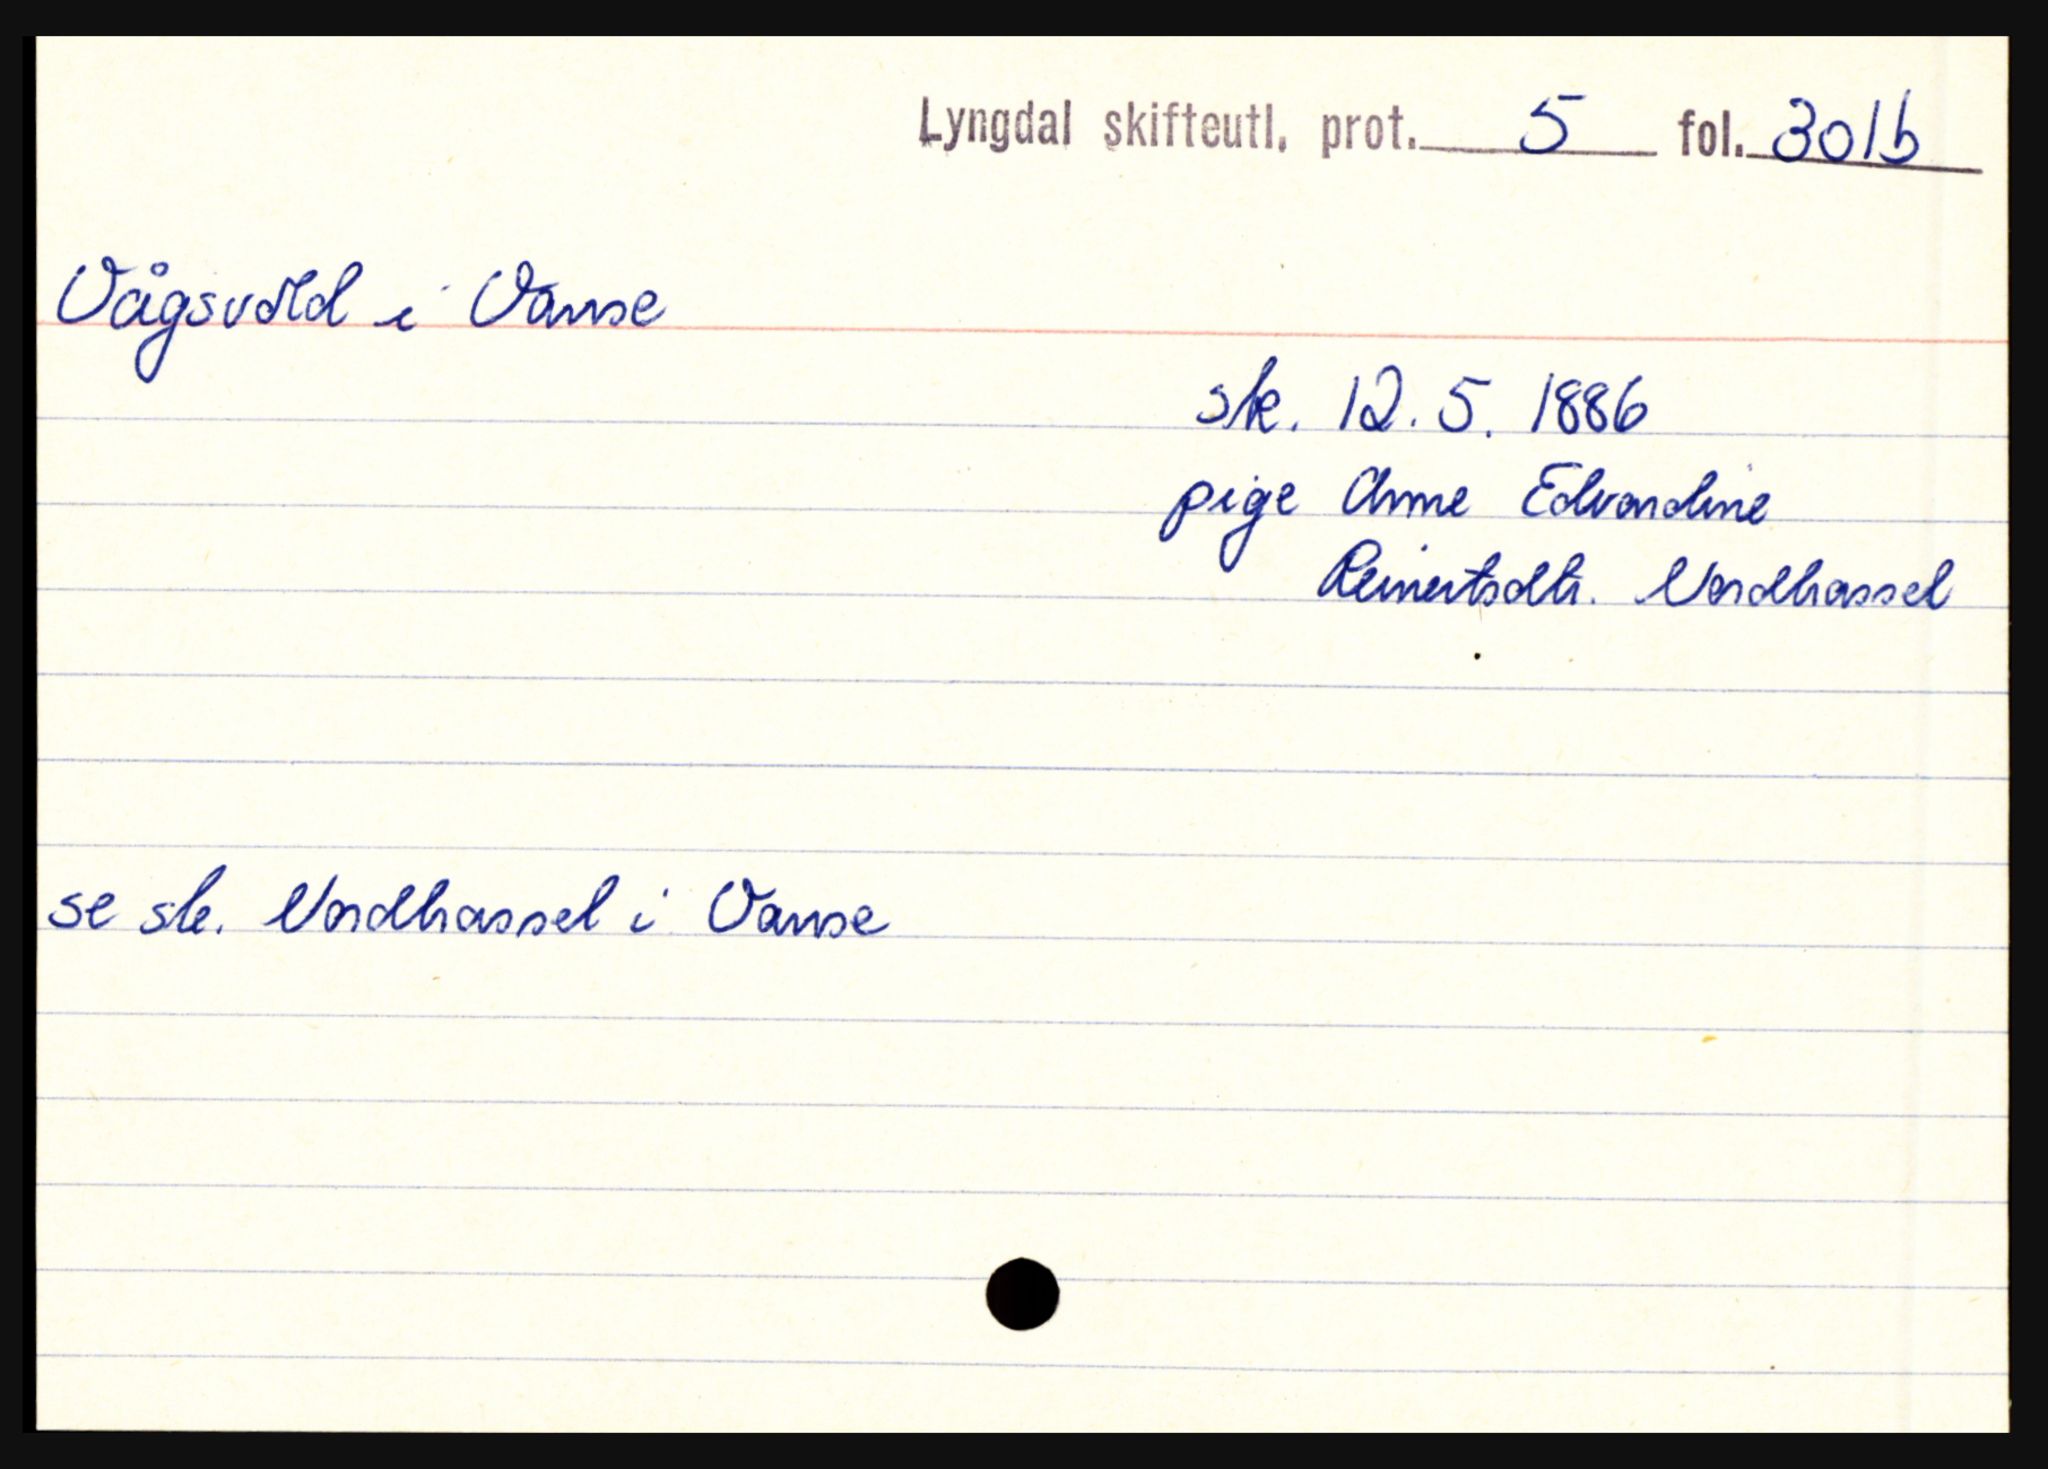 Lyngdal skifteutl. prot. 5 fol. 301b
Vågsvold i Vanse
sk. 12.5. 1886
pige Anne Edvardine
Reinertsdtr. Nordhassel
se sk. Nordhassel i Vanse